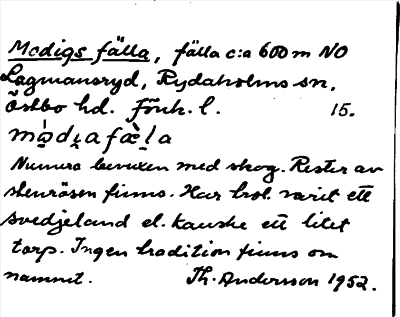 Modigs fälla, fälla c:a 600 m NO
Lagmansryd, Rydaholms sn,
Östbo hd. Jönk. l. 15.
Numera bevuxen med skog. Rester av
stenrösen finns. Har trol. varit ett
svedjeland el. kanske ett litet
torp. Ingen tradition finns om
namnet. Th. Andersson 1952.